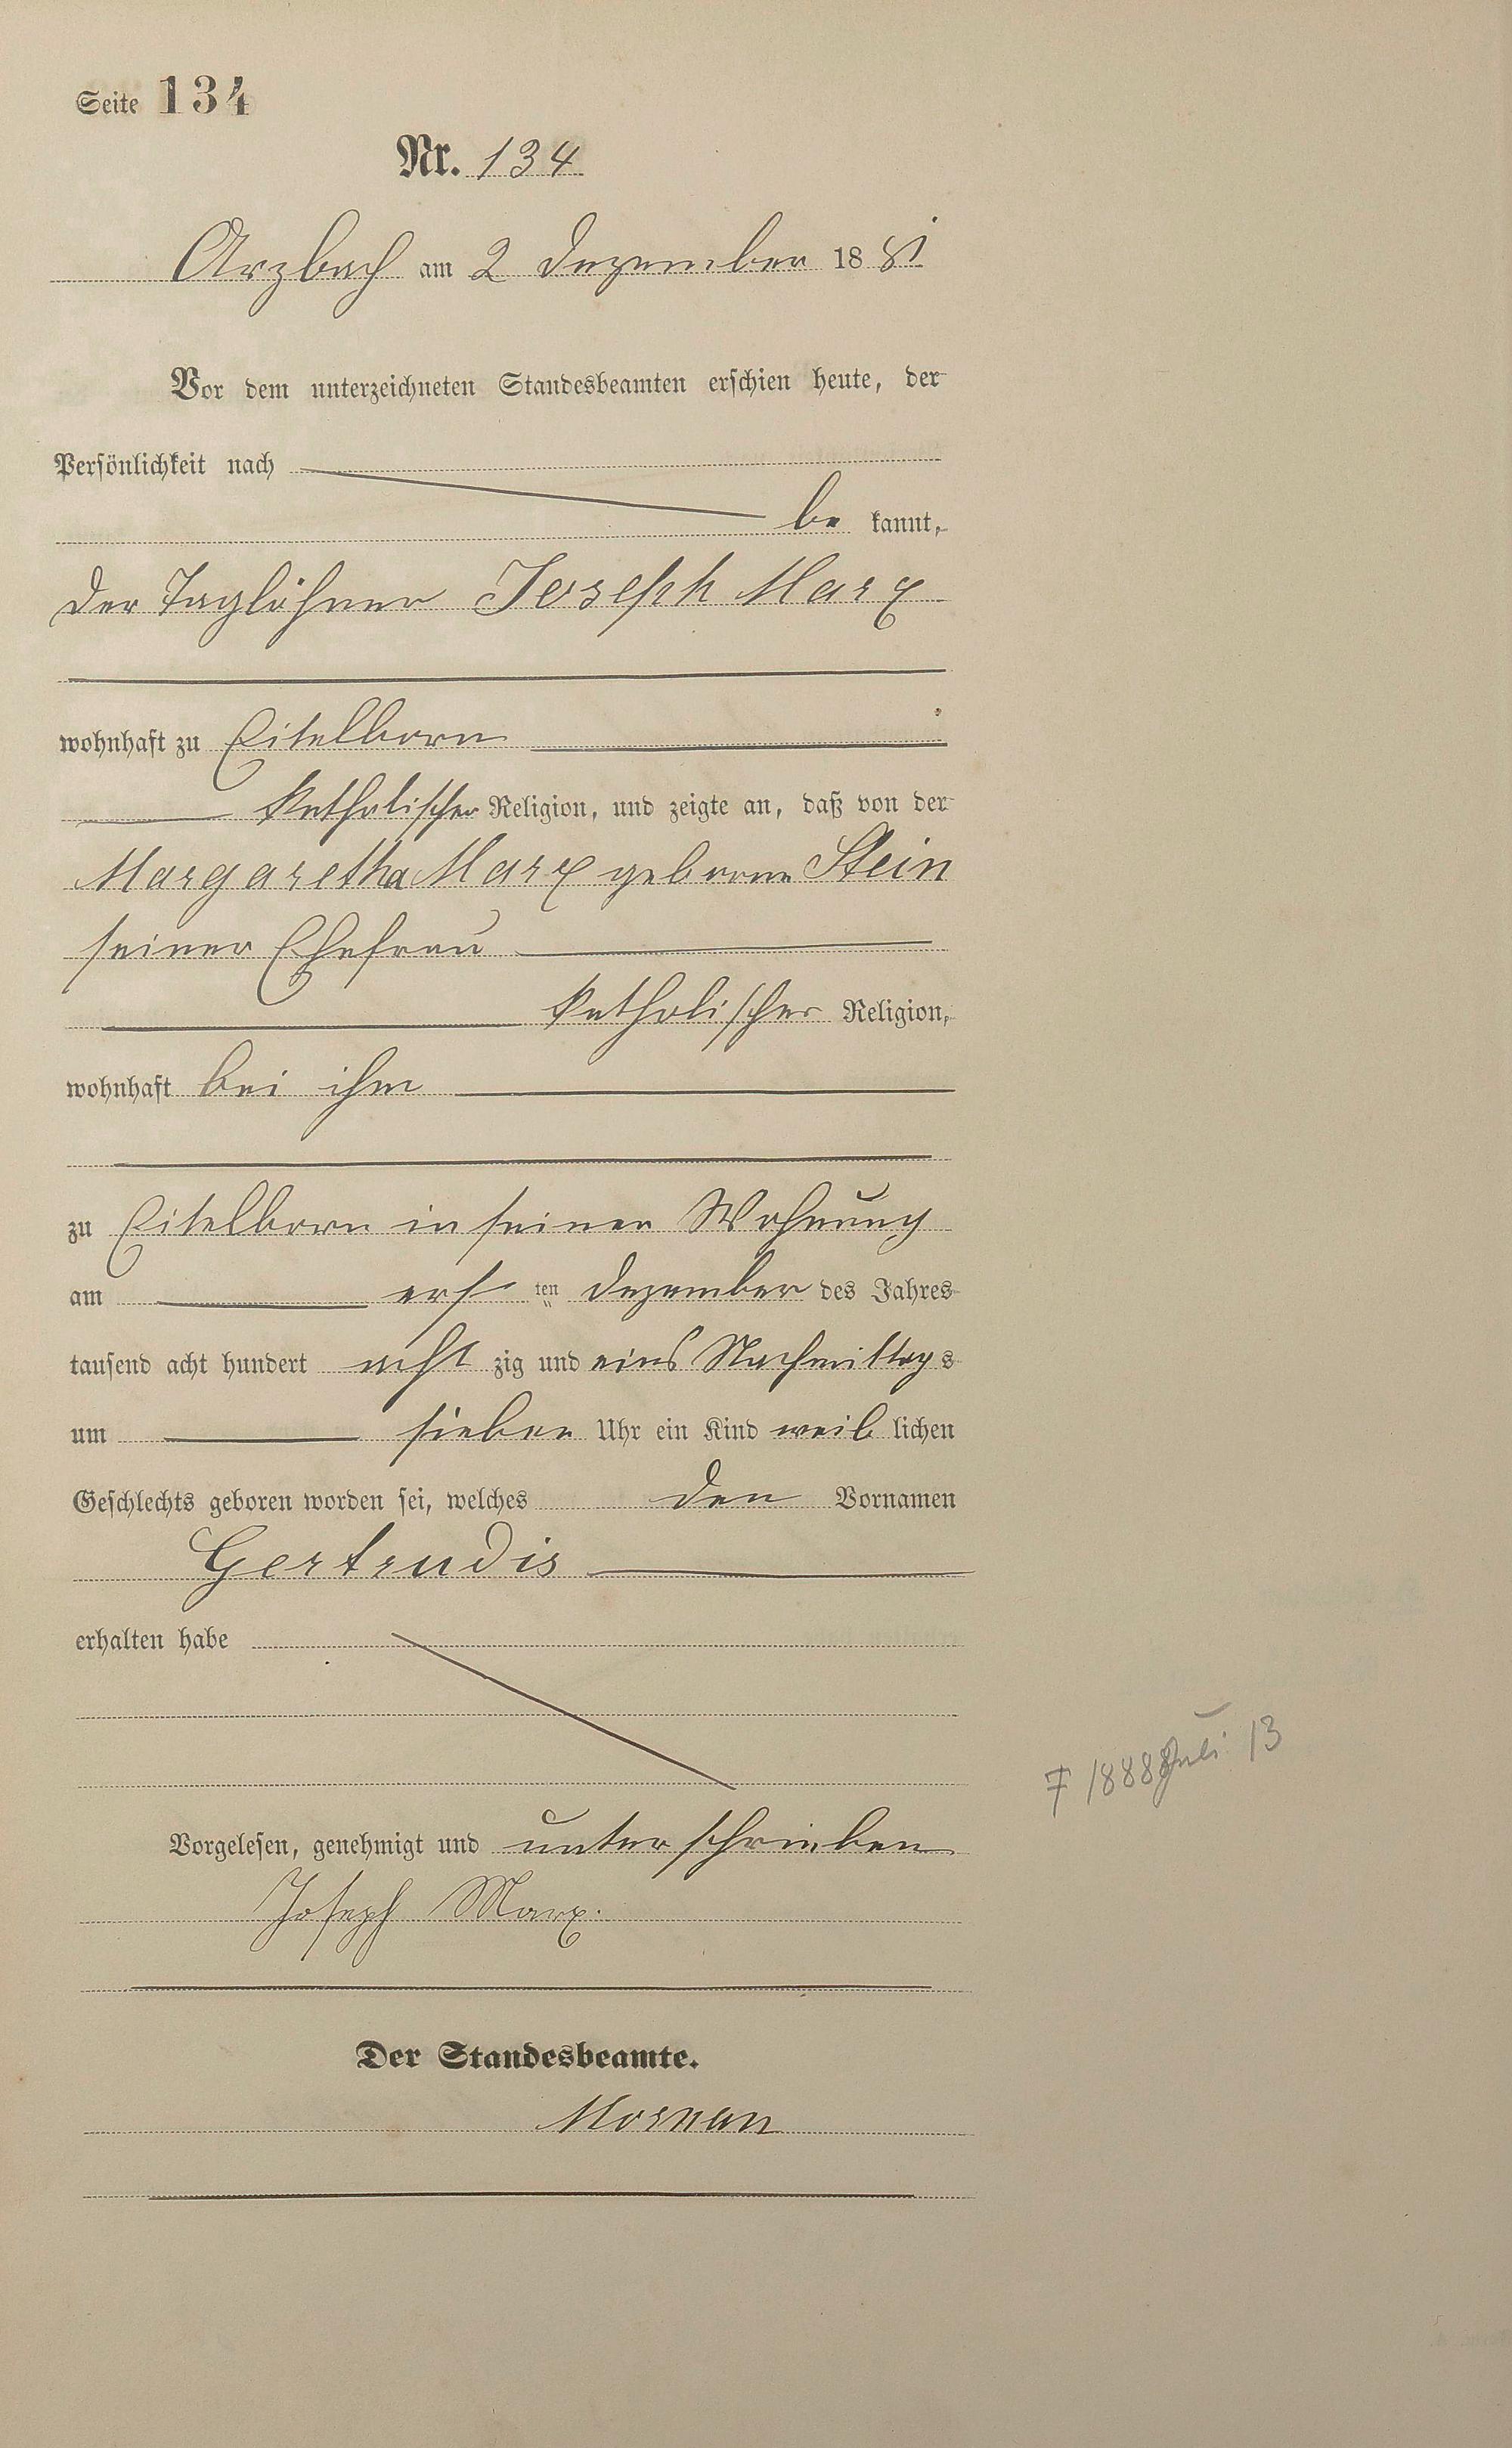 Seite 134
Nr. 134
Arzbach am 2 Dezember 1881
Vor dem unterzeichneten Standesbeamten erschien heute, der
Persönlichkeit nach
be kannt,
der Taglöhner Joseph Marx
wohnhaft zu Eitelborn
katholischer Religion, und zeigte an, daß von der
Margaretha Marx geborne Stein
seiner Ehefrau
katholischer Religion,
wohnhaft bei ihm
zu Eitelborn in seiner Wohnung
am ersten Dezember des Jahres
tausend acht hundert achtzig und eins Nachmittags
um sieben Uhr ein Kind weiblichen
Geschlechts geboren worden sei, welches den Vornamen
Gertrudis
erhalten habe
1888 Juli 13
Vorgelesen, genehmigt und unterschrieben
Joseph Marx.
Der Standesbeamte.